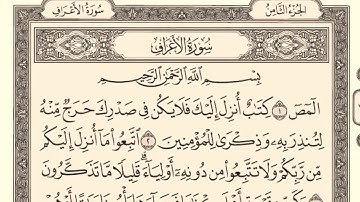 سُورَةُ الأَعْرَافِ الجُزْءُ الثَّامِنُ
سُورَةُ الأَعْرَافِ
بِسْمِ ٱللَّهِ ٱلرَّحْمَٰنِ ٱلرَّحِيمِ
الٓمٓصٓ ١ كِتَٰبٌ أُنزِلَ إِلَيْكَ فَلَا يَكُن فِى صَدْرِكَ حَرَجٌ مِّنْهُ
لِتُنذِرَ بِهِۦ وَذِكْرَىٰ لِلْمُؤْمِنِينَ ٢ ٱتَّبِعُوا۟ مَآ أُنزِلَ إِلَيْكُم
مِّن رَّبِّكُمْ وَلَا تَتَّبِعُوا۟ مِن دُونِهِۦٓ أَوْلِيَآءَۗ قَلِيلًا مَّا تَذَكَّرُونَ